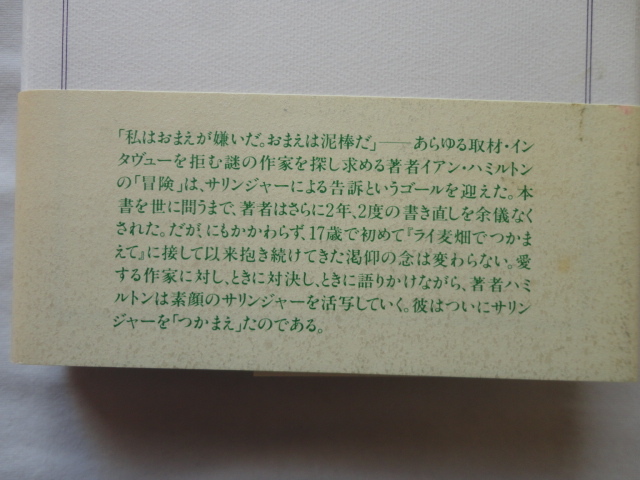 「私はおまえが嫌いだ。おまえは泥棒だ」——あらゆる取材・イン
タヴューを拒む謎の作家を探し求める著者イアン・ハミルトン
の「冒険」は、サリンジャーによる告訴というゴールを迎えた。本
書を世に問うまで、著者はさらに2年、2度の書き直しを余儀なく
された。だが、にもかかわらず、17歳で初めて『ライ麦畑でつかま
えて』に接して以来抱き続けてきた渇仰の念は変わらない。愛
する作家に対し、ときに対決し、ときに語りかけながら、著者ハミ
ルトンは素顔のサリンジャーを活写していく。彼はついにサリン
ジャーを「つかまえ」たのである。